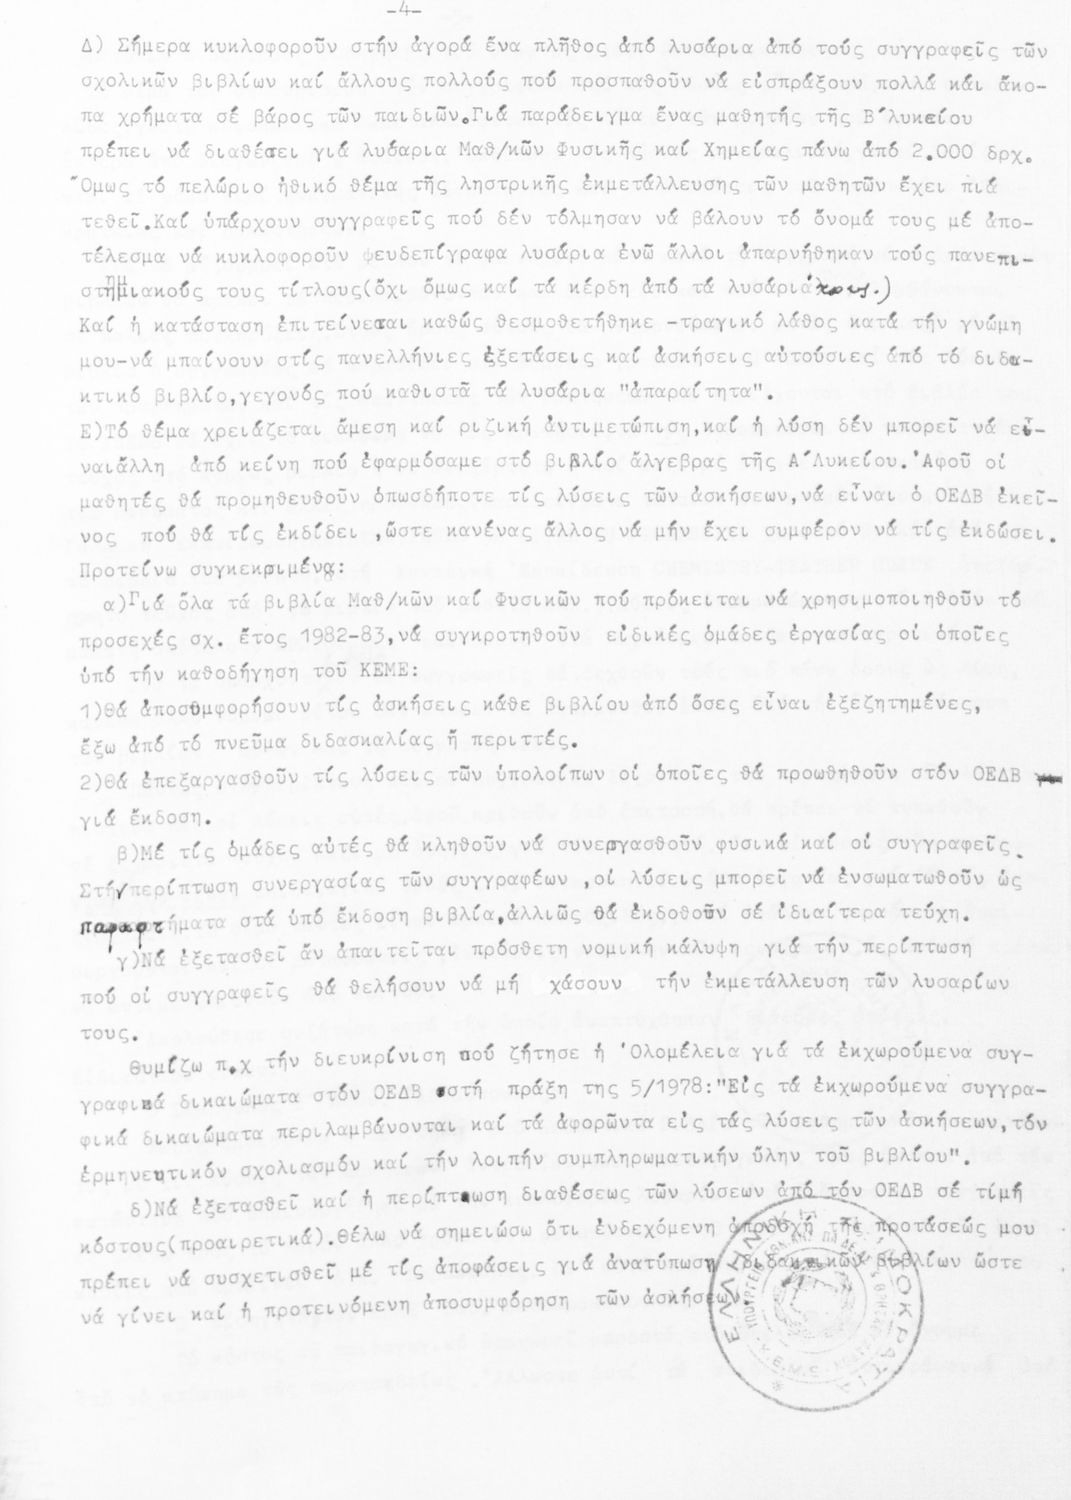 -4-
Δ) Σήμερα κυκλοφοροῦν στήν ἀγορά ἕνα πλῆθος ἀπό λυσάρια ἀπό τούς συγγραφεῖς τῶν
σχολικῶν βιβλίων καί ἄλλους πολλούς πού προσπαθοῦν νά εἰσπράξουν πολλά κάι ἄκο-
πα χρήματα σέ βάρος τῶν παιδιῶν.Γιά παράδειγμα ἕνας μαθητής τῆς Β΄λυκείου
πρέπει νά διαθέσει γιά λυσαρια Μαθ/κῶν Φυσικῆς καί Χημείας πάνω ἀπό 2.000 δρχ.
Ὅμως τό πελώριο ἠθικό θέμα τῆς ληστρικῆς ἐκμετάλλευσης τῶν μαθητῶν ἔχει πιά
τεθεῖ.Καί ὑπάρχουν συγγραφεῖς πού δέν τόλμησαν νά βάλουν τό ὄνομά τους μέ ἀπο-
τέλεσμα νά κυκλοφοροῦν ψευδεπίγραφα λυσάρια ἐνῶ ἄλλοι ἀπαρνήθηκαν τούς πανεπι-
στημιακούς τους τίτλους(ὄχι ὅμως καί τά κέρδη ἀπό τά λυσάριά τους.)
Καί ἡ κατάσταση ἐπιτείνεται καθώς θεσμοθετήθηκε -τραγικό λάθος κατά τήν γνώμη
μου-νά μπαίνουν στίς πανελλήνιες ἐξετάσεις καί ἀσκήσεις αὐτούσιες ἀπό τό διδα-
κτικό βιβλίο,γεγονός πού καθιστᾶ τά λυσάρια "ἀπαραίτητα".
Ε)Τό θέμα χρειάζεται ἄμεση καί ριζική ἀντιμετώπιση,καί ἡ λύση δέν μπορεῖ νά εἶ-
ναιἄλλη ἀπό κείνη πού ἐφαρμόσαμε στό βιβλίο ἄλγεβρας τῆς Α΄Λυκείου.Ἀφοῦ οἱ
μαθητές θά προμηθευθοῦν ὁπωσδήποτε τίς λύσεις τῶν ἀσκήσεων,νά εἶναι ὁ ΟΕΔΒ ἐκεῖ-
νος πού θά τίς ἐκδίδει ,ὥστε κανένας ἄλλος νά μήν ἔχει συμφέρον νά τίς ἐκδώσει.
Προτείνω συγκεκριμένα:
α)Γιά ὅλα τά βιβλία Μαθ/κῶν καί Φυσικῶν πού πρόκειται νά χρησιμοποιηθοῦν τό
προσεχές σχ. ἔτος 1982-83,νά συγκροτηθοῦν εἰδικές ὁμάδες ἐργασίας οἱ ὁποῖες
ὑπό τήν καθοδήγηση τοῦ ΚΕΜΕ:
1)θά ἀποσυμφορήσουν τίς ἀσκήσεις κάθε βιβλίου ἀπό ὅσες εἶναι ἐξεζητημένες,
ἔξω ἀπό τό πνεῦμα διδασκαλίας ἤ περιττές.
2)θά ἐπεξαργασθοῦν τίς λύσεις τῶν ὑπολοίπων οἱ ὁποῖες θά προωθηθοῦν στόν ΟΕΔΒ
γιά ἔκδοση.
β)Μέ τίς ὁμάδες αὐτές θά κληθοῦν νά συνεργασθοῦν φυσικά καί οἱ συγγραφεῖς.
Στήν περίπτωση συνεργασίας τῶν συγγραφέων ,οἱ λύσεις μπορεῖ νά ἐνσωματωθοῦν ὡς
παραρτήματα στά ὑπό ἔκδοση βιβλία,ἀλλιῶς θά ἐκδοθοῦν σέ ἰδιαίτερα τεύχη.
γ)Νά ἐξετασθεῖ ἄν ἀπαιτεῖται πρόσθετη νομική κάλυψη γιά τήν περίπτωση
πού οἱ συγγραφεῖς θά θελήσουν νά μή χάσουν τήν ἐκμετάλλευση τῶν λυσαρίων
τους.
Θυμίζω π.χ τήν διευκρίνιση πού ζήτησε ἡ Ὁλομέλεια γιά τά ἐκχωρούμενα συγ-
γραφικά δικαιώματα στόν ΟΕΔΒ στή πράξη της 5/1978:"Εἰς τά ἐκχωρούμενα συγγρα-
φικά δικαιώματα περιλαμβάνονται καί τά ἀφορῶντα εἰς τάς λύσεις τῶν ἀσκήσεων,τόν
ἑρμηνευτικόν σχολιασμόν καί τήν λοιπήν συμπληρωματικήν ὕλην τοῦ βιβλίου".
δ)Νά ἐξετασθεῖ καί ἡ περίπτωση διαθέσεως τῶν λύσεων ἀπό τόν ΟΕΔΒ σέ τίμή
κόστους(προαιρετικά).Θέλω νά σημειώσω ὅτι ἐνδεχόμενη ἀποδοχή τῆς προτάσεώς μου
πρέπει νά συσχετισθεῖ μέ τίς ἀποφάσεις γιά ἀνατύπωση διδακτικῶν βιβλίων ὥστε
νά γίνει καί ἡ προτεινόμενη ἀποσυμφόρηση τῶν ἀσκήσεων
ΕΛΛΗΝΙΚΗ ΔΗΜΟΚΡΑΤΙΑ
Κ.Ε.Μ.Ε.